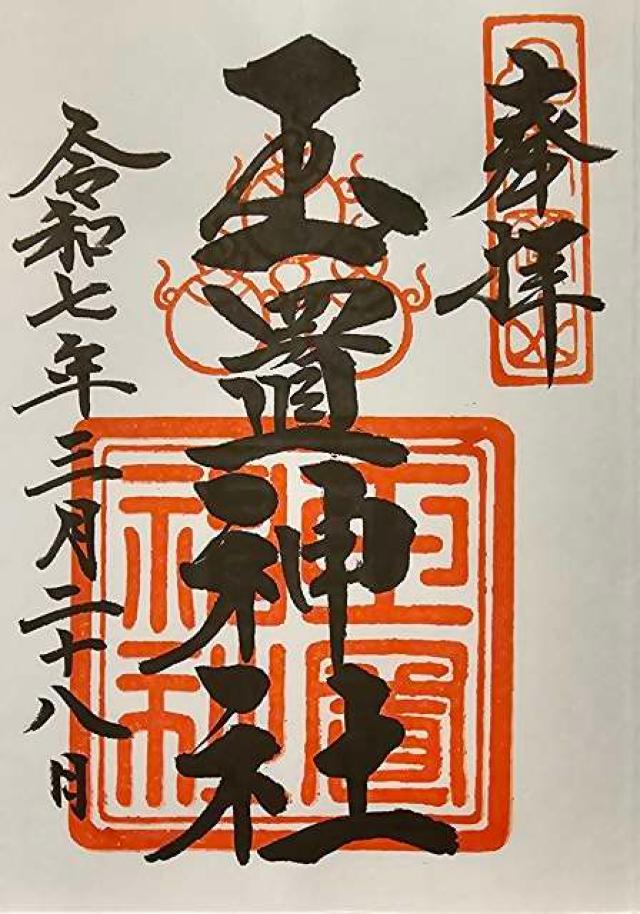 奉拝
玉置神社
令和七年三月二十八日
玉置神社